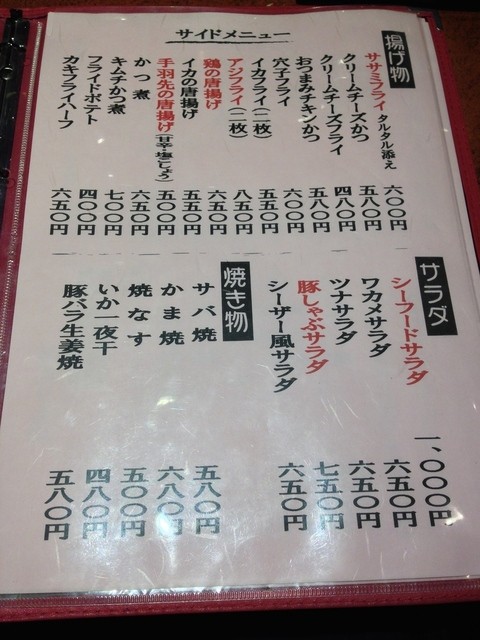 サイドメニュー
揚げ物
ササミフライ タルタル添え 六〇〇円
クリームチーズかつ 五八〇円
クリームチーズフライ 四八〇円
おつまみチキンかつ 五八〇円
穴子フライ 六〇〇円
イカフライ(二枚) 五五〇円
アジフライ(二枚) 八五〇円
鶏の唐揚げ 六五〇円
イカの唐揚げ 五五〇円
手羽先の唐揚げ(甘辛・塩こしょう) 五〇〇円
かつ煮 六五〇円
キムチかつ煮 七〇〇円
フライドポテト 四〇〇円
カキフライハーフ 六五〇円
サラダ
シーフードサラダ 一、〇〇〇円
ワカメサラダ 六五〇円
ツナサラダ 六五〇円
豚しゃぶサラダ 七五〇円
シーザー風サラダ 六五〇円
焼き物
サバ焼 五八〇円
かま焼 六八〇円
焼なす 五〇〇円
いか一夜干 四八〇円
豚バラ生姜焼 五八〇円